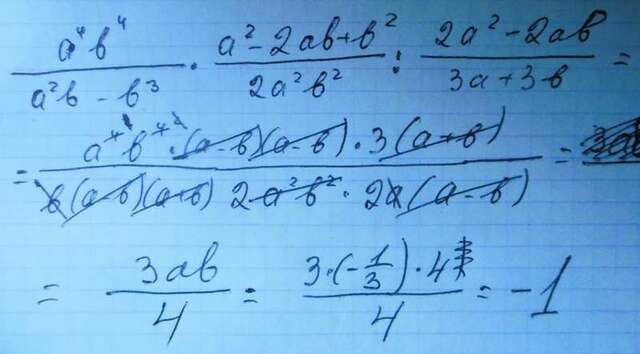 a⁴b⁴/(a²b - b³) · (a² - 2ab + b²)/(2a²b²) : (2a² - 2ab)/(3a + 3b) =
= a⁴b⁴ · (a - b)(a - b) · 3(a + b)/(b(a - b)(a + b) 2a²b² · 2a(a - b)) =
= 3ab/4 = 3·(-1/3)·4/4 = -1